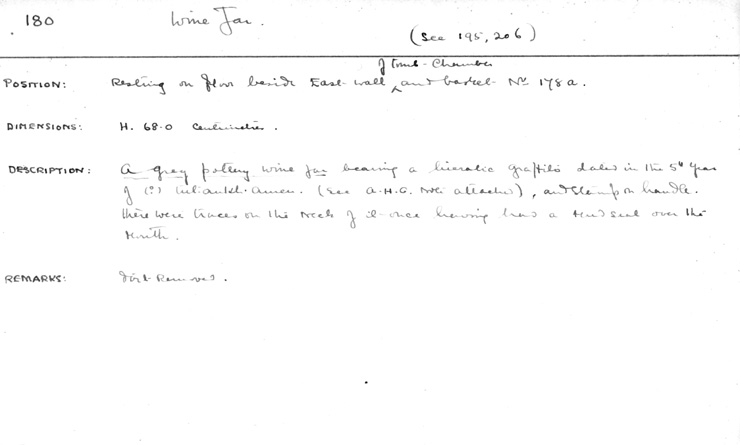 180 Wine Jar.
(See 195, 206)
of tomb-Chamber
POSITION: Resting on floor beside East-wall ^ and basket Nº 178a.
DIMENSIONS: H. 68·0 Centimetres.
DESCRIPTION: A gray pottery wine jar bearing a hieratic graffito dated in the 5th Year
of (?) Tut·ankh·Amen. (see A.H.G. Note attached), and stamp on handle.
There were traces on the neck of it once having had a mud seal over the
Mouth.
REMARKS: dirt removed.